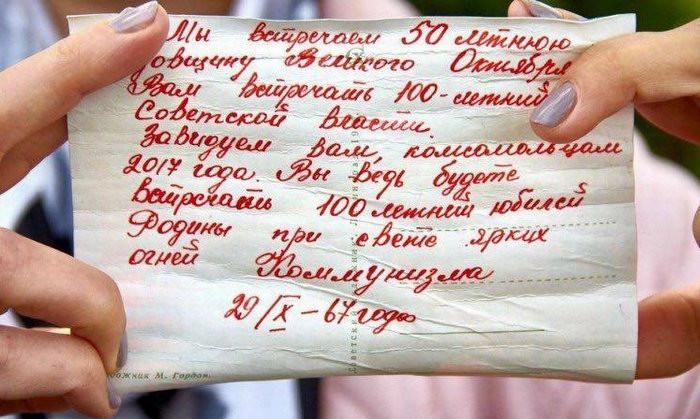 Мы встречаем 50 летнюю
довщину Великого Октября
Вам встречать 100-летний
Советской власти.
Завидуем вам, комсомольцам
2017 года. Вы ведь будете
встречать 100 летний юбилей
Родины при свете ярких
огней Коммунизма
29/IX – 67 года
дожник М. Гордон.